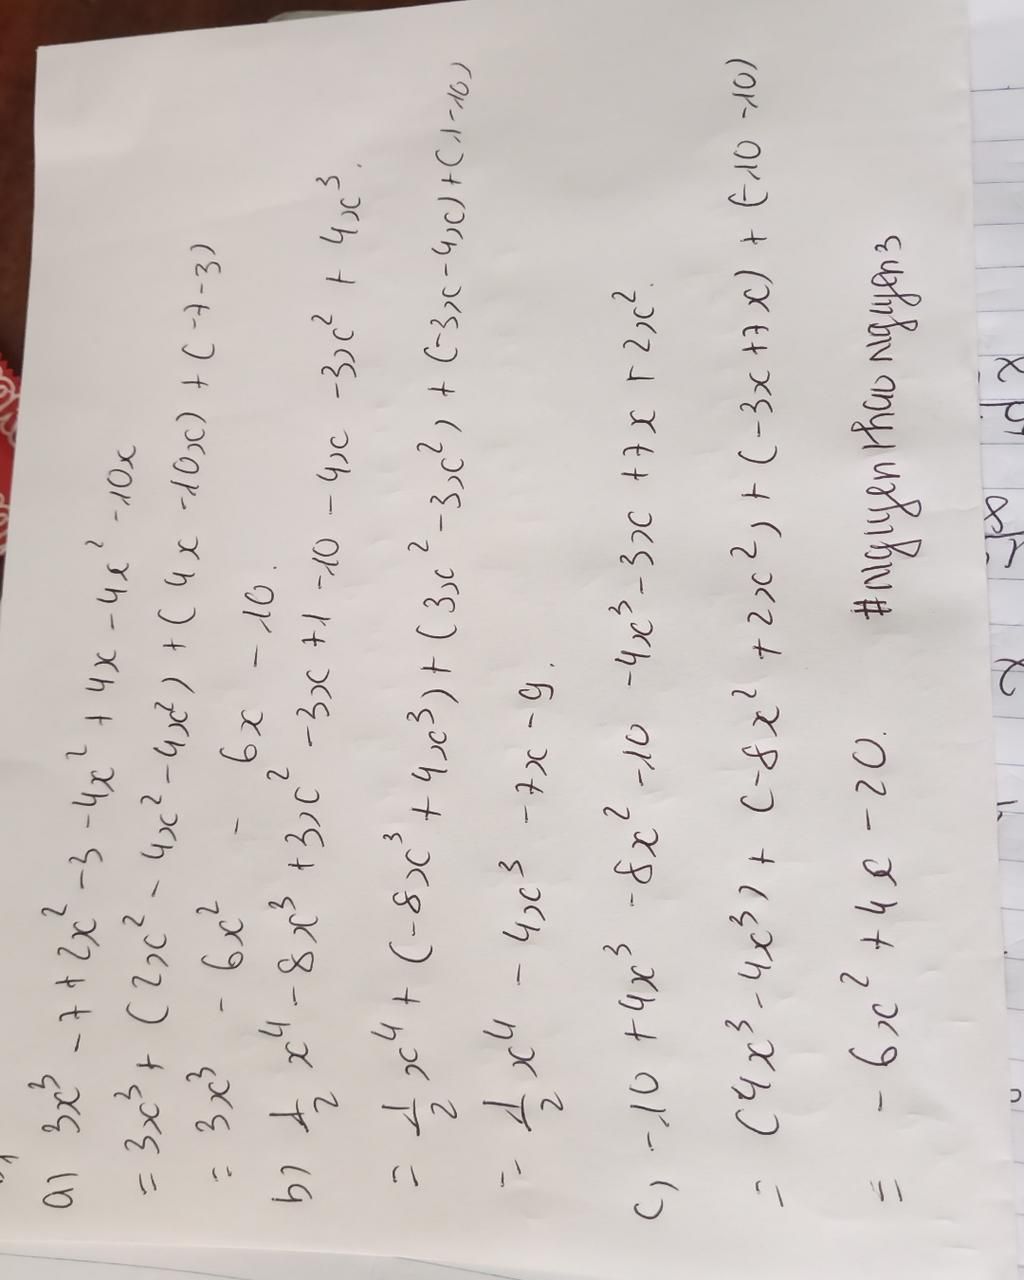 a) 3x³ - 7 + 2x² - 3 - 4x² + 4x - 4x² - 10x
= 3x³ + (2x² - 4x² - 4x²) + (4x - 10x) + (-7-3)
= 3x³ - 6x² - 6x - 10.
b) 1/2 x⁴ - 8x³ + 3x² - 3x + 1 - 10 - 4x - 3x² + 4x³.
= 1/2 x⁴ + (-8x³ + 4x³) + (3x² - 3x²) + (-3x - 4x) + (1-10)
= 1/2 x⁴ - 4x³ - 7x - 9.
c) -10 + 4x³ - 8x² - 10 - 4x³ - 3x + 7x + 2x².
= (4x³ - 4x³) + (-8x² + 2x²) + (-3x + 7x) + (-10 - 10)
= - 6x² + 4x - 20.
#Nguyenthaonguyen3